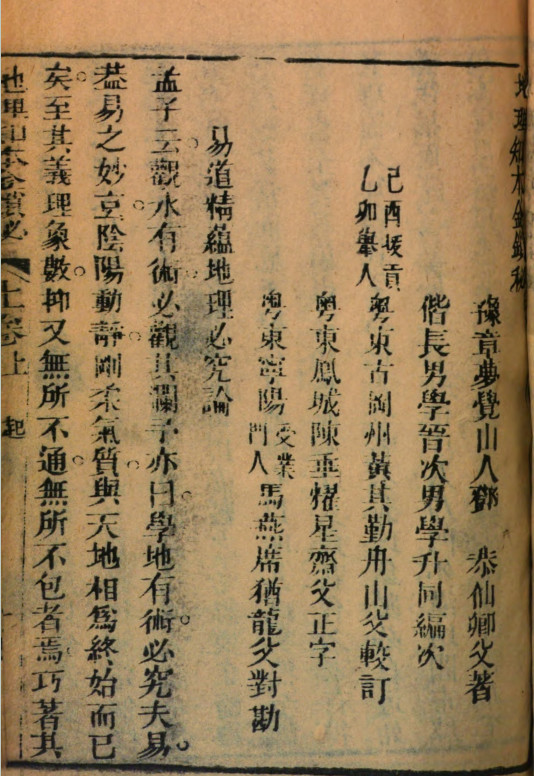 地理知本金鎖秘
豫章夢覺山人鄧 恭仙卿父著
偕長男學晉次男學升同編次
己酉拔貢
乙卯舉人
粵東古岡州黃其勤舟山父較訂
粵東鳳城陳垂耀星齋父正字
粵東寧陽
受業
門人
馬燕席猶龍父對勘
易道精蘊地理必究論
孟子云觀水有術必觀其瀾予亦曰學地有術必究夫易
葢易之妙亶陰陽動靜剛柔氣質與天地相爲終始而已
矣至其義理象數抑又無所不通無所不包者焉巧著其
地理知本金鎖秘 上卷上 起